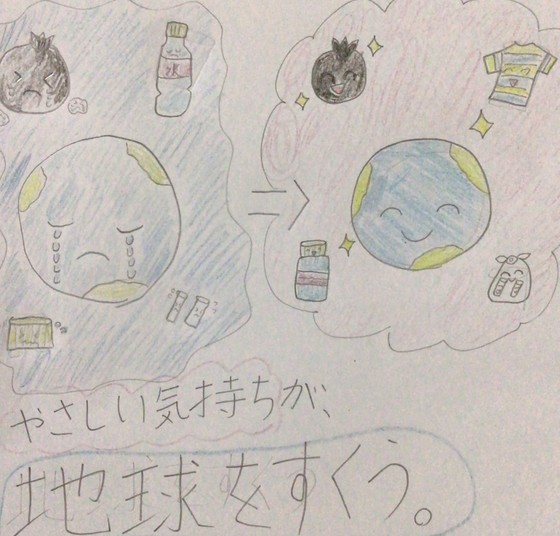 水
やさしい気持ちが、
地球をすくう。